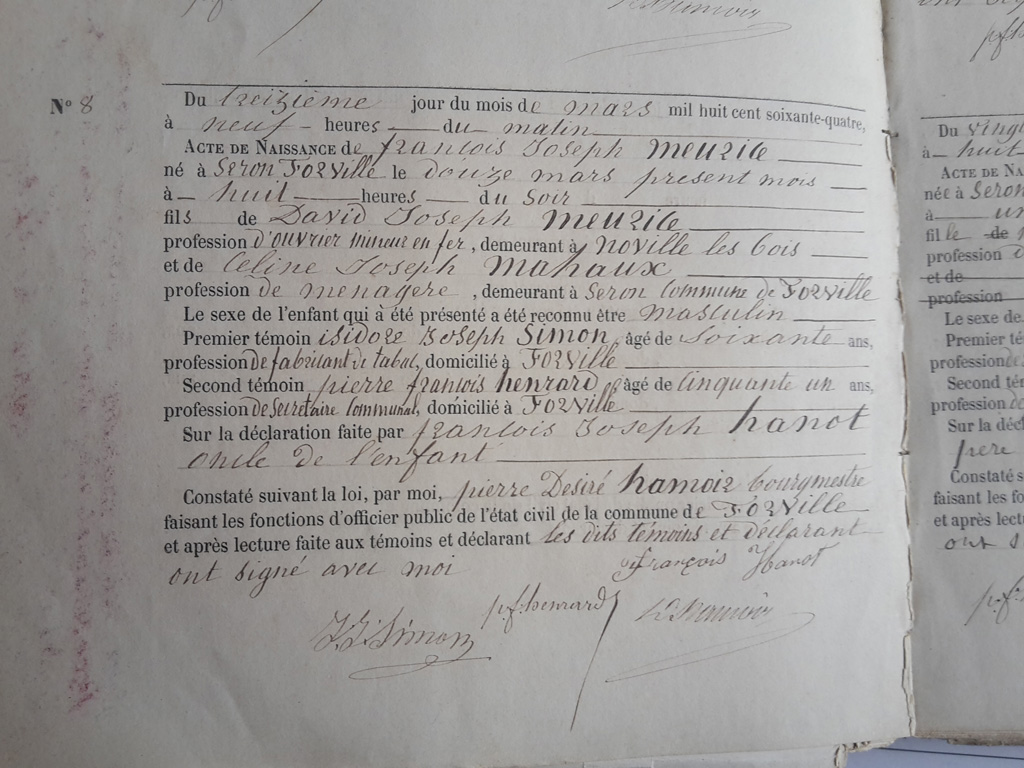 Nº 8
Du treizième jour du mois de mars mil huit cent soixante-quatre,
à neuf heures du matin
ACTE DE NAISSANCE de françois Joseph Meurice
né à Seron Forville le douze mars présent mois
à huit heures du Soir
fils de David Joseph Meurice
profession d'ouvrier mineur en fer, demeurant à noville les bois
et de Celine Joseph Mahaux
profession de menagere, demeurant à Seron Commune de Forville
Le sexe de l'enfant qui a été présenté a été reconnu être masculin
Premier témoin isidore Joseph Simon, âgé de Soixante ans,
profession de fabricant de tabac, domicilié à Forville
Second témoin pierre françois henrard, âgé de Cinquante un ans,
profession de Secretaire Communal, domicilié à Forville
Sur la déclaration faite par françois Joseph hanot
oncle de l'enfant
Constaté suivant la loi, par moi, pierre Desiré hamoir bourgmestre
faisant les fonctions d'officier public de l'état civil de la commune de Forville
et après lecture faite aux témoins et déclarant les dits témoins et déclarant
ont signé avec moi
François Hanot
p.f. henrard
J.J. Simon
Du vingt
à huit
ACTE DE NA
née à Seron
à un
fille de
profession
et de
profession
Le sexe de
Premier té
profession de
Second tém
profession de
Sur la décl
pere
Constaté s
faisant les fo
et après lectu
ont s
p.f.